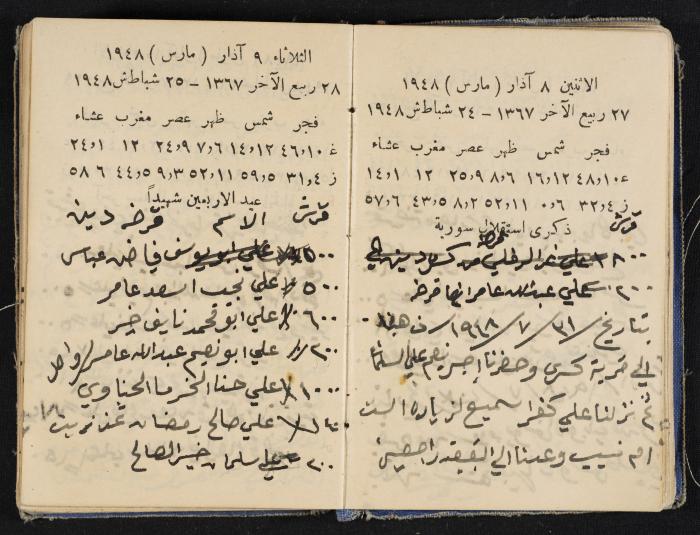 الاثنين ٨ آذار ( مارس ) ١٩٤٨
٢٧ ربيع الآخر ١٣٦٧ - ٢٤ شباط ش ١٩٤٨
فجر شمس ظهر عصر مغرب عشاء
غ ١٠و٤٨ ١٢و١٦ ٦و٨ ٩و٢٥ ١٢ ١و١٤
ز ٤و٣٢ ٦و٠ ١١و٥٢ ٣و٨ ٥و٤٣ ٦و٥٧
ذكرى استقلال سورية
قرش
٨٠٠ علي
٢٠٠ علي عبدالله عامر ايضا قرضه
بتاريخ ٣١ / ٧ / ١٩٤٨
الي قرية
ثم نزلنا علي كفر اسميع لزيارة الست
ام نسيب وعدنا الي البقيعة راجعين
الثلاثاء ٩ آذار ( مارس ) ١٩٤٨
٢٨ ربيع الآخر ١٣٦٧ - ٢٥ شباط ش ١٩٤٨
فجر شمس ظهر عصر مغرب عشاء
غ ١٠و٤٦ ١٢و١٤ ٦و٧ ٩و٢٤ ١٢ ١و٢٤
ز ٤و٣١ ٥و٥٩ ١١و٥٢ ٣و٩ ٥و٤٤ ٦ ٥٨
عيد الاربعين شهيداً
قرش الاسم قرضه دين
علي ابو يوسف فياض عباس
٥٠٠ علي نجيب اسعد عامر
٦٠٠ علي ابو محمد نايف خير
٢٠٠ علي ابو نعيم عبدالله عامر
١٠٠٠ علي حنا الخرما الحناوي
علي صالح رمضان
٢٠٠ علي سلمان خير الصالح